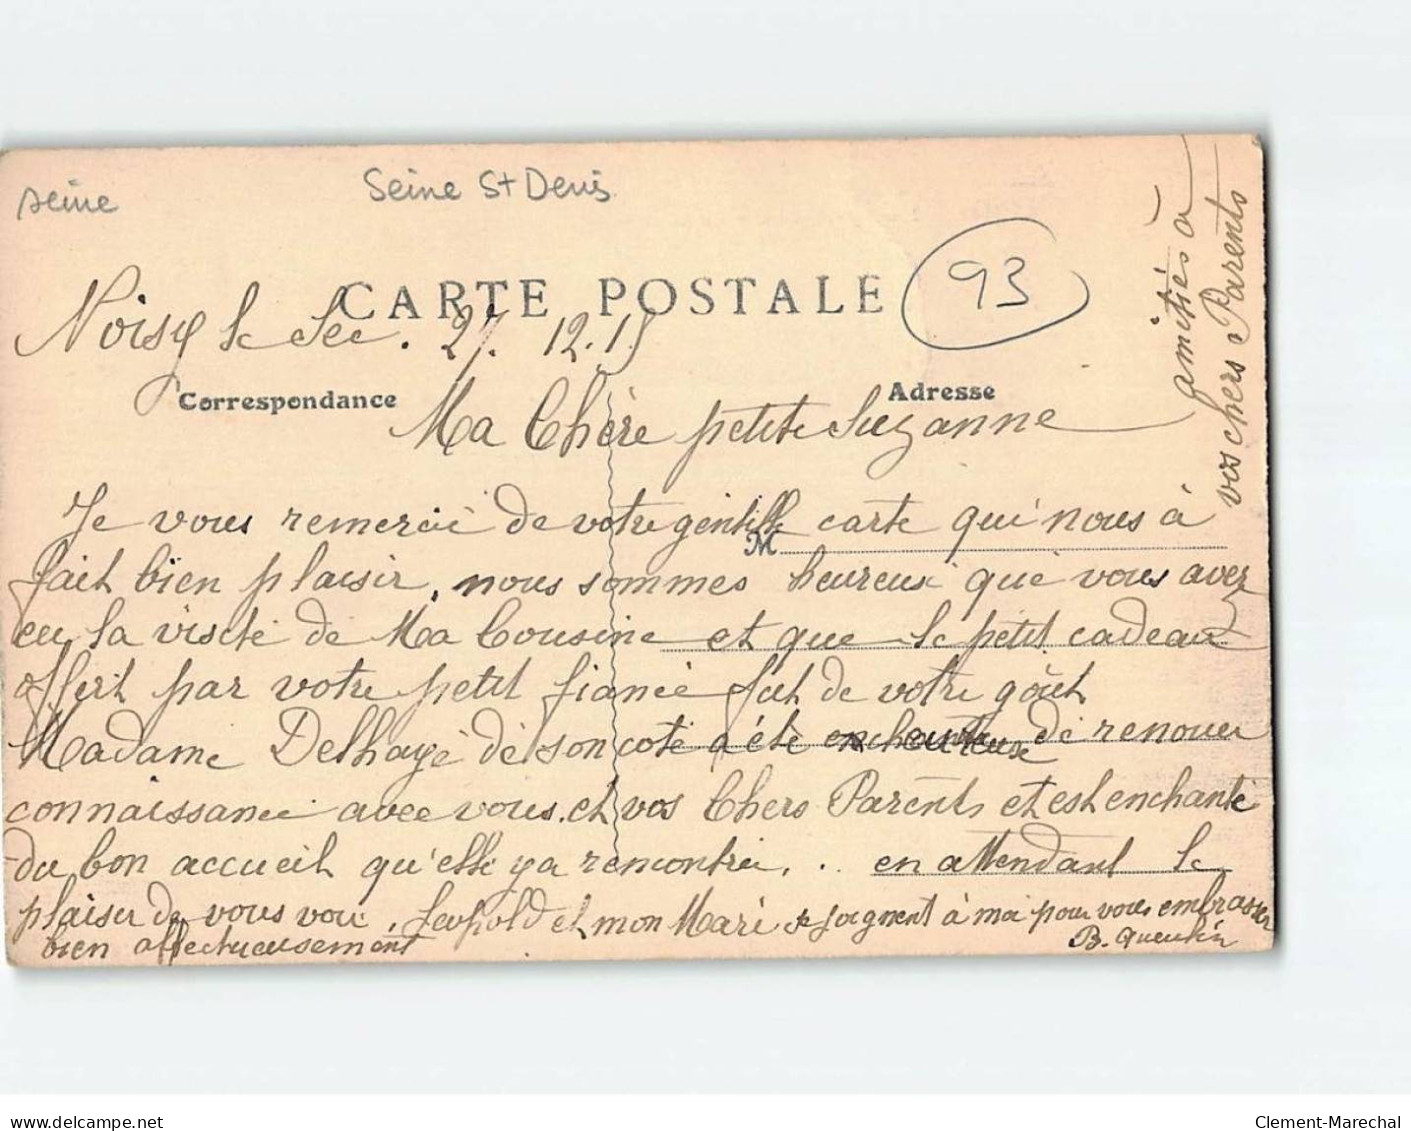 seine
Seine St Denis
93
CARTE POSTALE
Noisy le Sec. 27. 12.15
Correspondance
Adresse
Ma Chère petite Suzanne
Je vous remercie de votre gentille carte qui nous à
M
fait bien plaisir, nous sommes heureux que vous avez
eu la visite de Ma Cousine et que le petit cadeau
offert par votre petit fiancé fut de votre goût
Madame Delhaye de son coté a été heureuse de renouer
connaissance avec vous et vos Chers Parents et est enchanté
du bon accueil qu'elle y a rencontré... en attendant le
plaisir de vous voir, Léopold et mon Mari se joignent à moi pour vous embrasser
bien affectueusement
B. Quentin
amitiés à
vos chers Parents
www.delcampe.net
Clement-Marechal